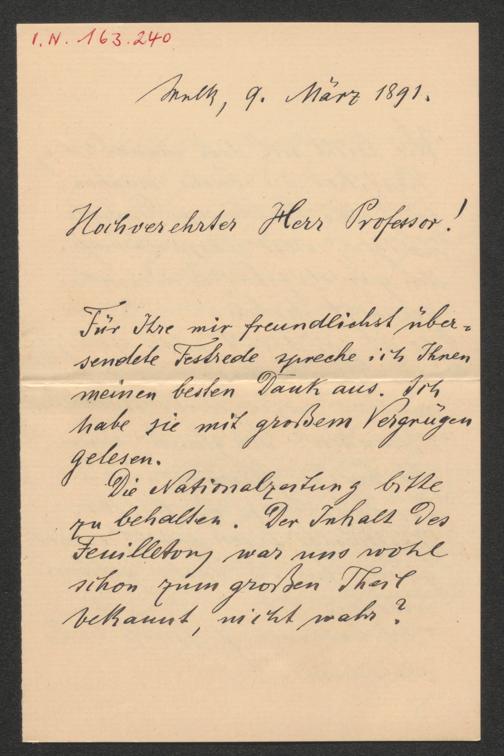 I.N. 163.240
Melk, 9. März 1891.
Hochverehrter Herr Professor!
Für Ihre mir freundlichst über=
sendete Festrede spreche ich Ihnen
meinen besten Dank aus. Ich
habe sie mit großem Vergnügen
gelesen.
Die Nationalzeitung bitte
zu behalten. Der Inhalt des
Feuilletons war uns wohl
schon zum großen Theil
bekannt, nicht wahr?